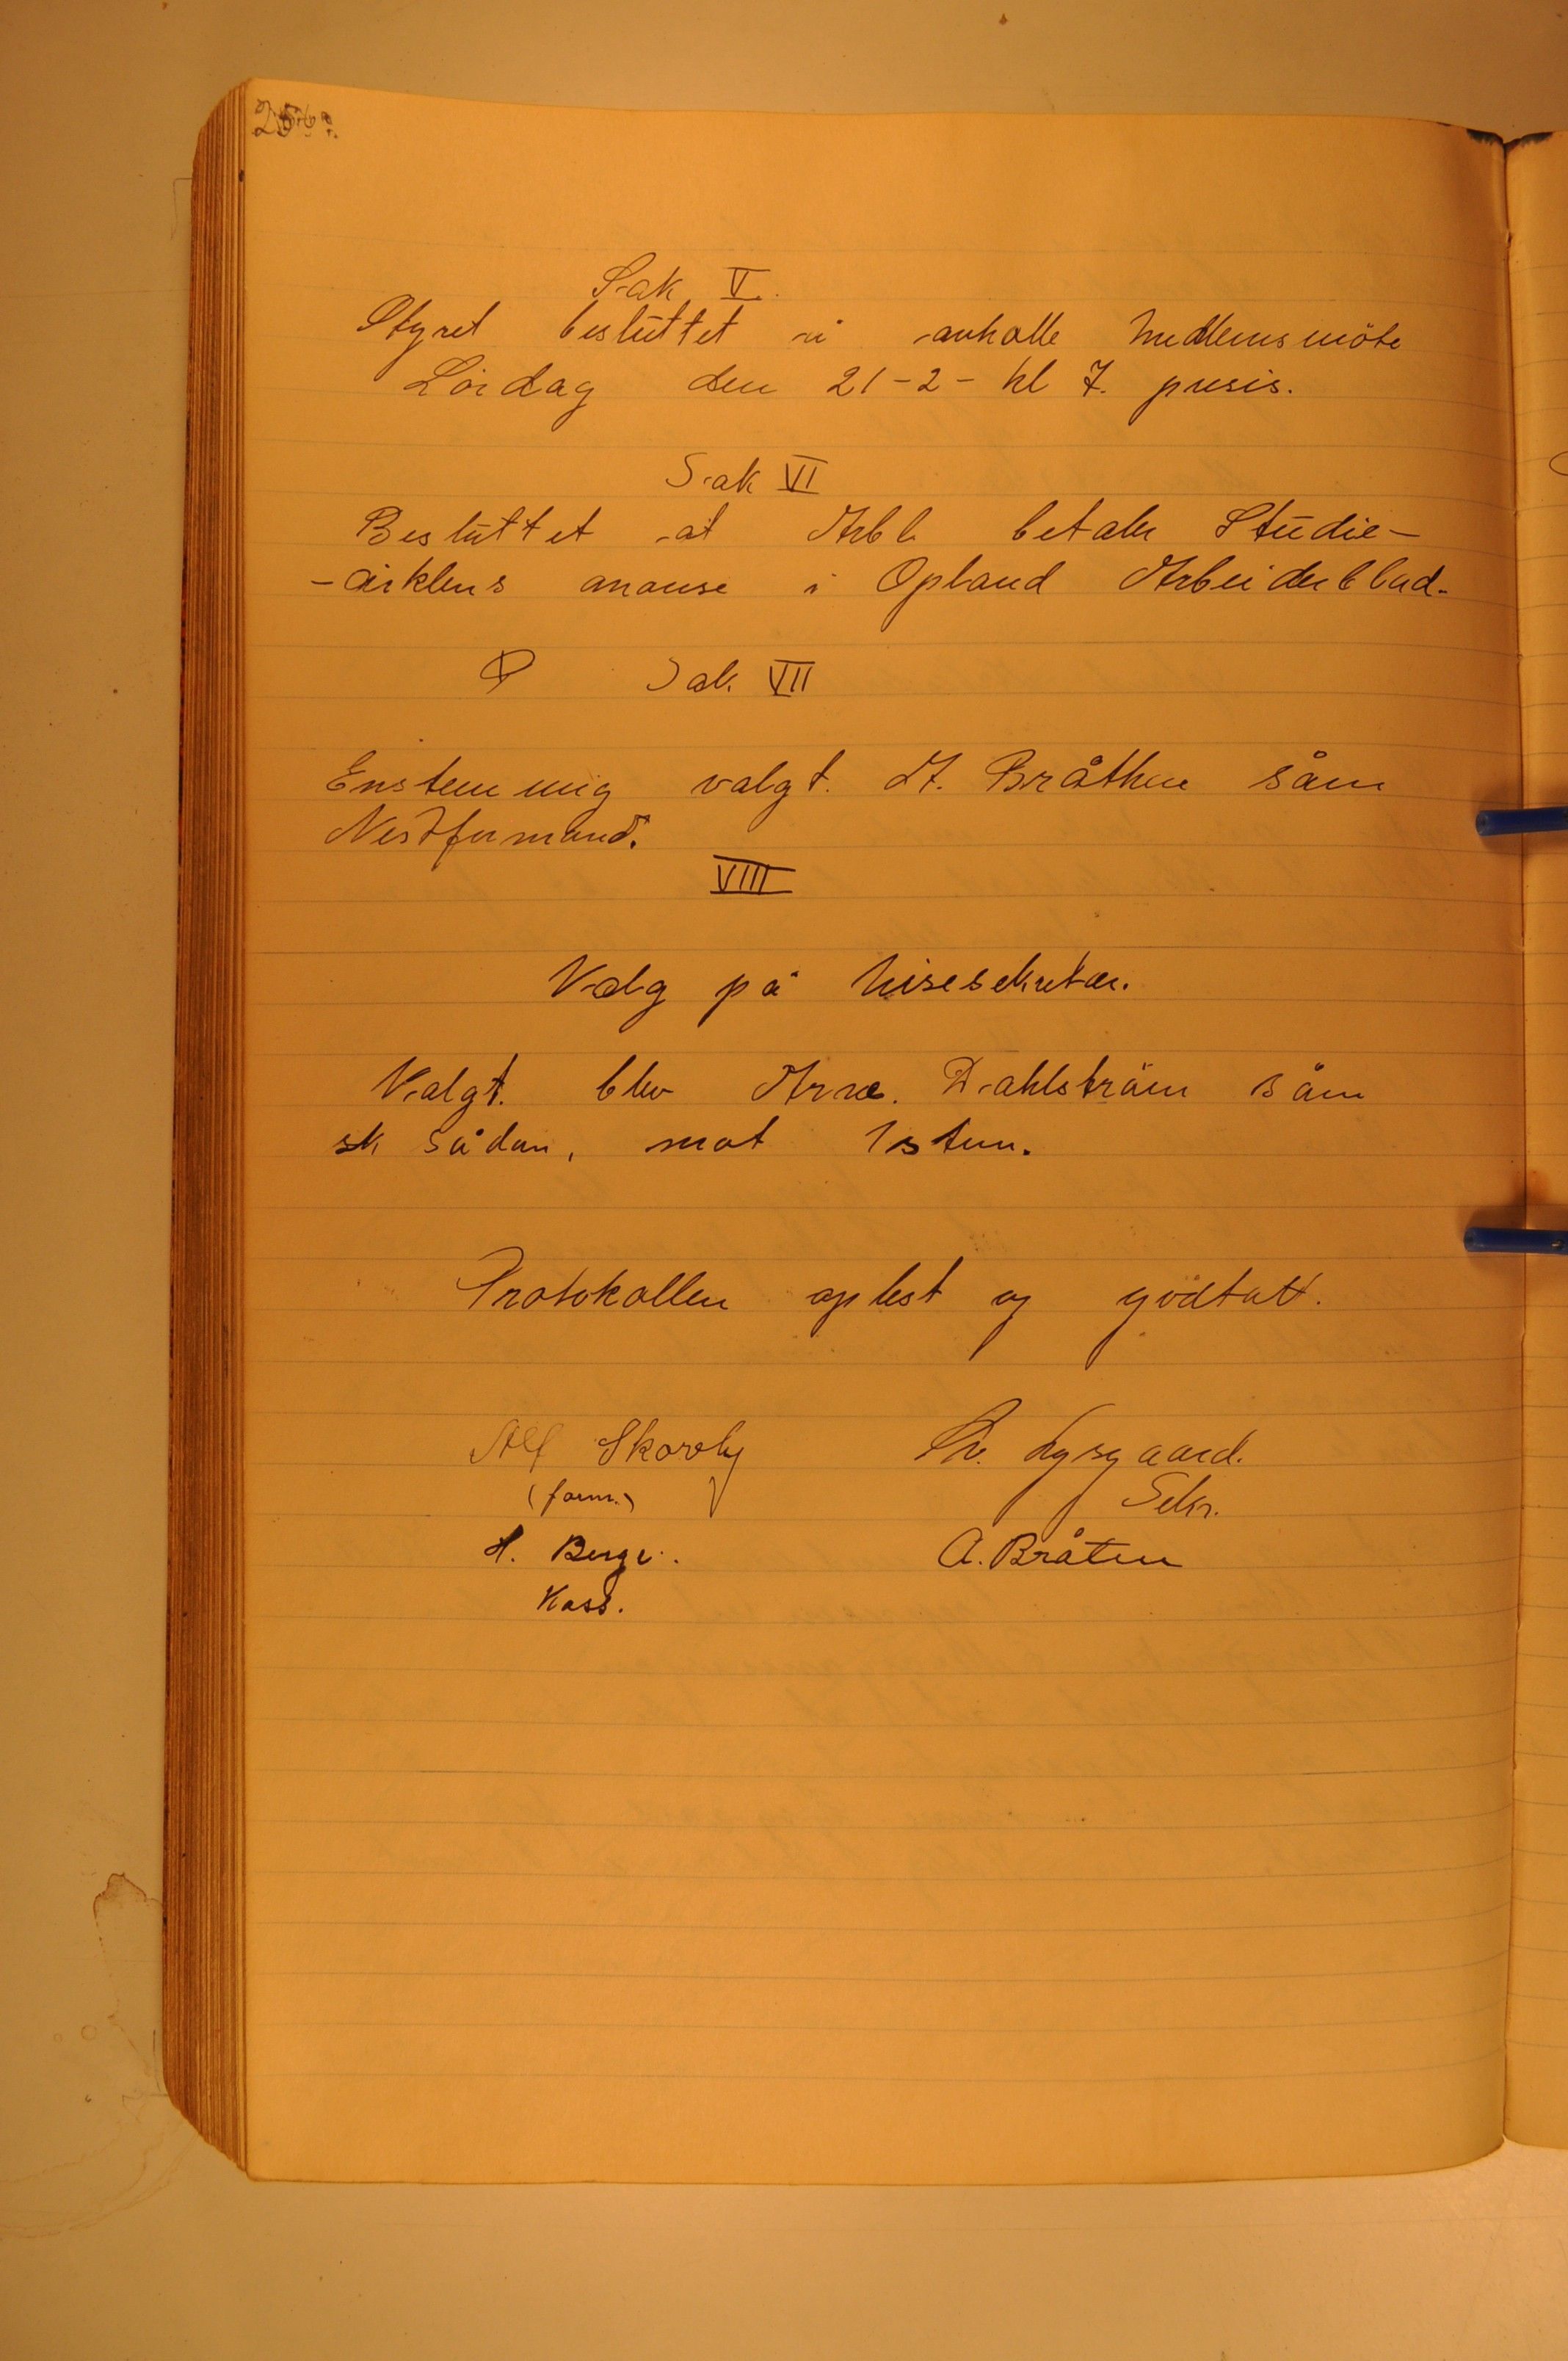 256.
Sak V.
Styret besluttet å avholle medlemsmöte
Lördag den 21-2- kl 7. presis.
Sak VI
Besluttet at Arbl. betaler Studie-
-cirklens anonse i Opland Arbeiderblad.
Sak VII
Enstemmig valgt. A. Bråthen såm
Nestformand.
VIII
Valg på visesekretær.
Valgt. blev Arne. Dahlström såm
sk sådan, mot 1 stem.
Protokollen oplest og godtatt.
Alf Skovly
Th. Lysgaard.
(form.)
Sekr.
H. Berge.
A. Bråten
Kass.